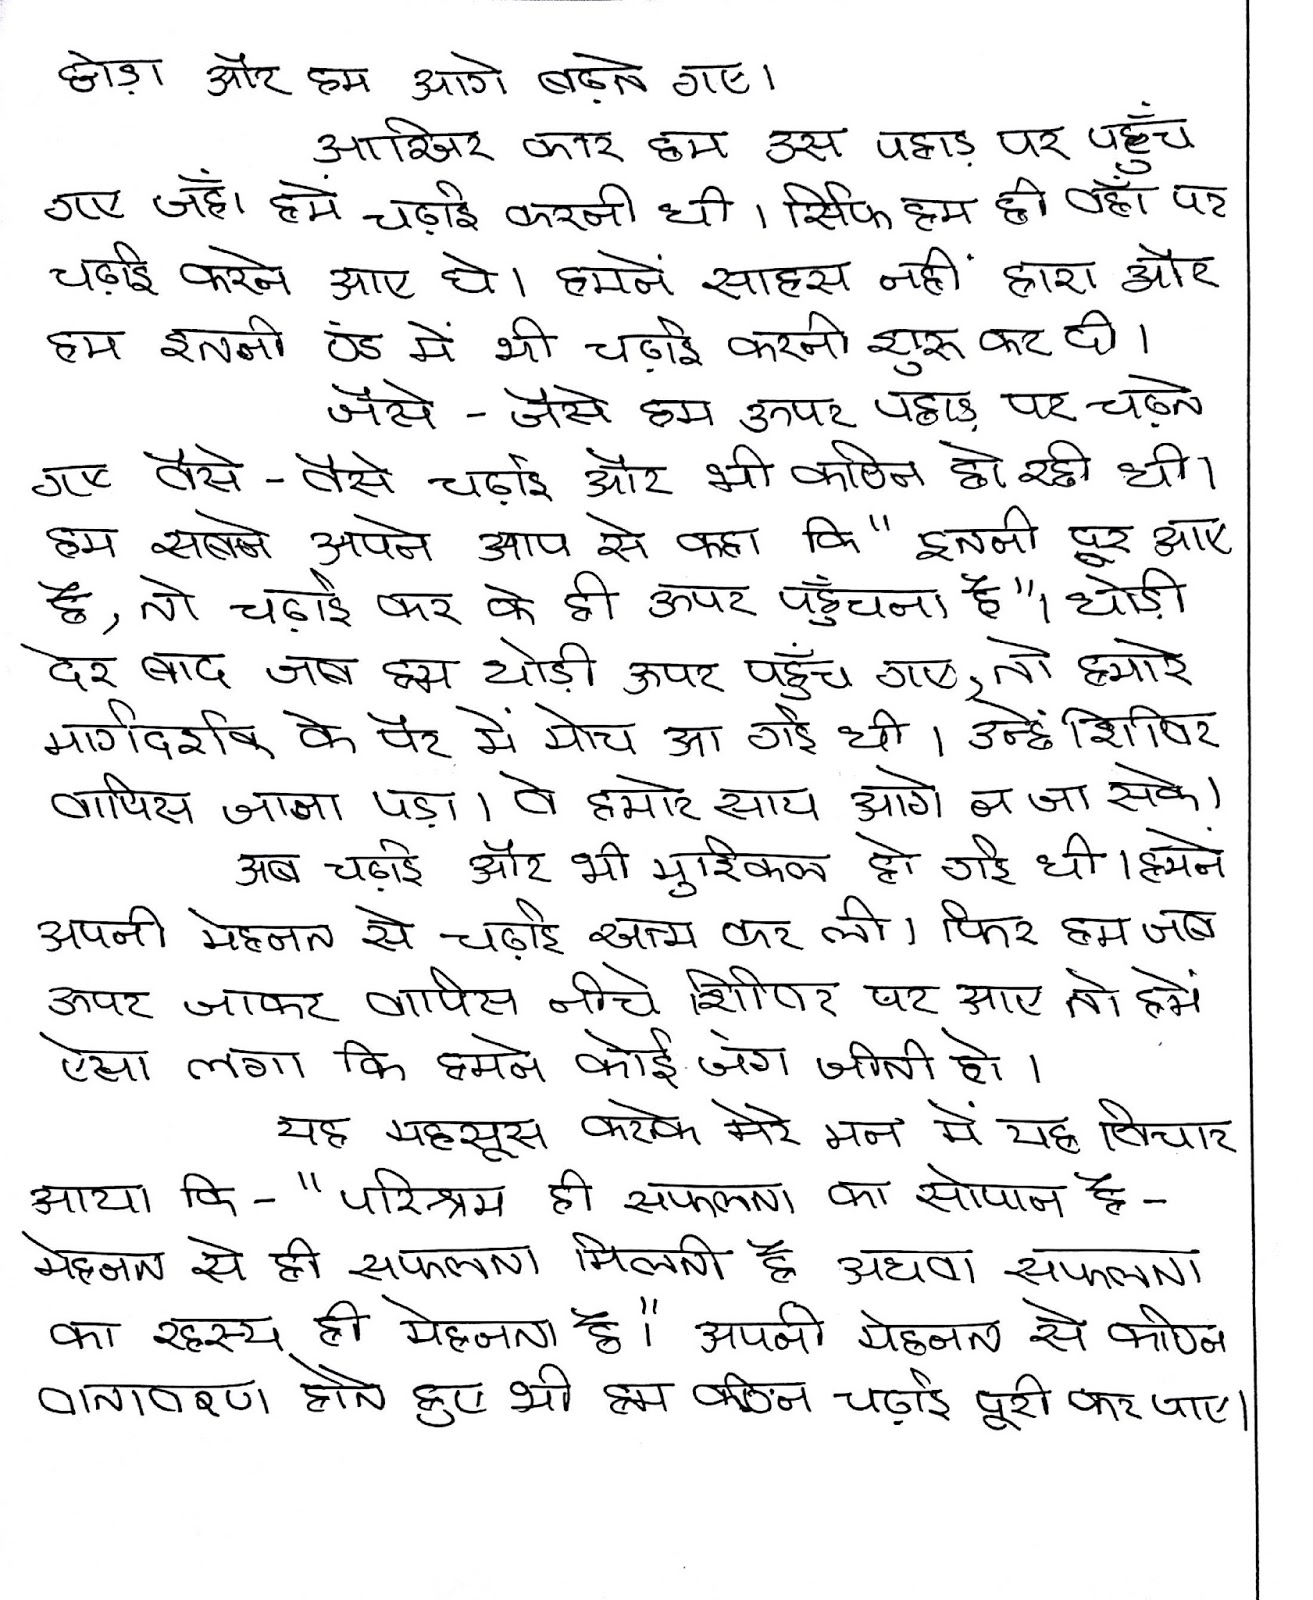 छोड़ा और हम आगे बढ़ते गए।
आखिर कार हम उस पहाड़ पर पहुँच
गए जहाँ हमें चढ़ाई करनी थी। सिर्फ हम ही वहाँ पर
चढ़ाई करने आए थे। हमनें साहस नहीं हारा और
हम इतनी ठंड में भी चढ़ाई करनी शुरू कर दी।
जैसे - जैसे हम ऊपर पहाड़ पर चढ़ते
गए वैसे - वैसे चढ़ाई और भी कठिन हो रही थी।
हम सबने अपने आप से कहा कि " इतनी दूर आए
है, तो चढ़ाई कर के ही ऊपर पहुँचना है"। थोड़ी
देर बाद जब हम थोड़ी ऊपर पहुँच गए, तो हमारे
मार्गदर्शक के पैर में मोच आ गई थी। उन्हें शिविर
वापिस जाना पड़ा। वे हमारे साथ आगे न जा सके।
अब चढ़ाई और भी मुश्किल हो गई थी। हमनें
अपनी मेहनत से चढ़ाई खत्म कर ली। फिर हम जब
ऊपर जाकर वापिस नीचे शिविर पर आए तो हमें
ऐसा लगा कि हमने कोई जंग जीती हो।
यह महसूस करके मेरे मन में यह विचार
आया कि - " परिश्रम ही सफलता का सोपान है -
मेहनत से ही सफलता मिलती है अथवा सफलता
का रहस्य ही मेहनता है।" अपनी मेहनत से कठिन
वातावरण होते हुए भी हम कठिन चढ़ाई पूरी कर पाए।